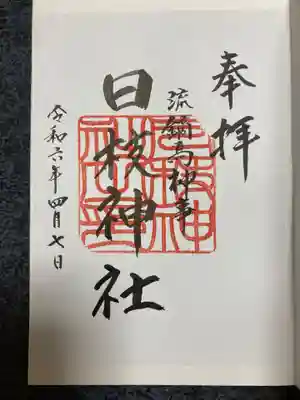 奉拝
流鏑馬神事
日枝神社
令和六年四月七日